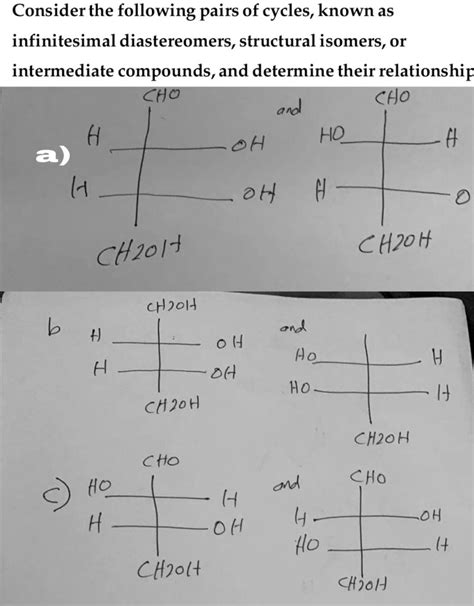 Consider the following pairs of cycles, known as
infinitesimal diastereomers, structural isomers, or
intermediate compounds, and determine their relationship
CHO and CHO
a) H OH HO H
H OH H O
CH2OH CH2OH
CH2OH
b H OH and HO H
H OH HO H
CH2OH CH2OH
CHO CHO
c) HO H and H OH
H OH HO H
CH2OH CH2OH